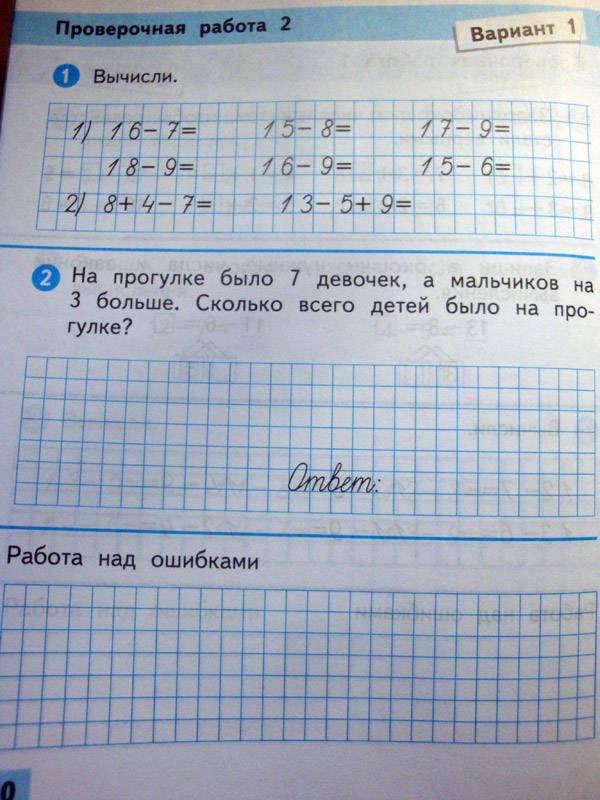 Проверочная работа 2
Вариант 1
1 Вычисли.
1) 16-7= 15-8= 17-9=
18-9= 16-9= 15-6=
2) 8+4-7= 13-5+9=
2 На прогулке было 7 девочек, а мальчиков на
3 больше. Сколько всего детей было на про-
гулке?
Ответ:
Работа над ошибками
0